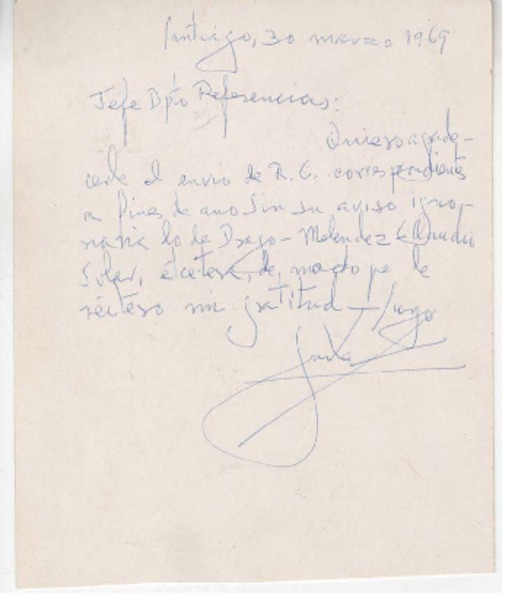 Santiago, 30 marzo 1969
Jefe Dpto Referencias:
Quiero agrade-
cerle el envio de R. C. correspondiente
a fines de año. Sin su aviso igno-
raria lo de Drago - Melendez & Claudio
Soler, etcetera, de modo que le
reitero mi gratitud - Suyo